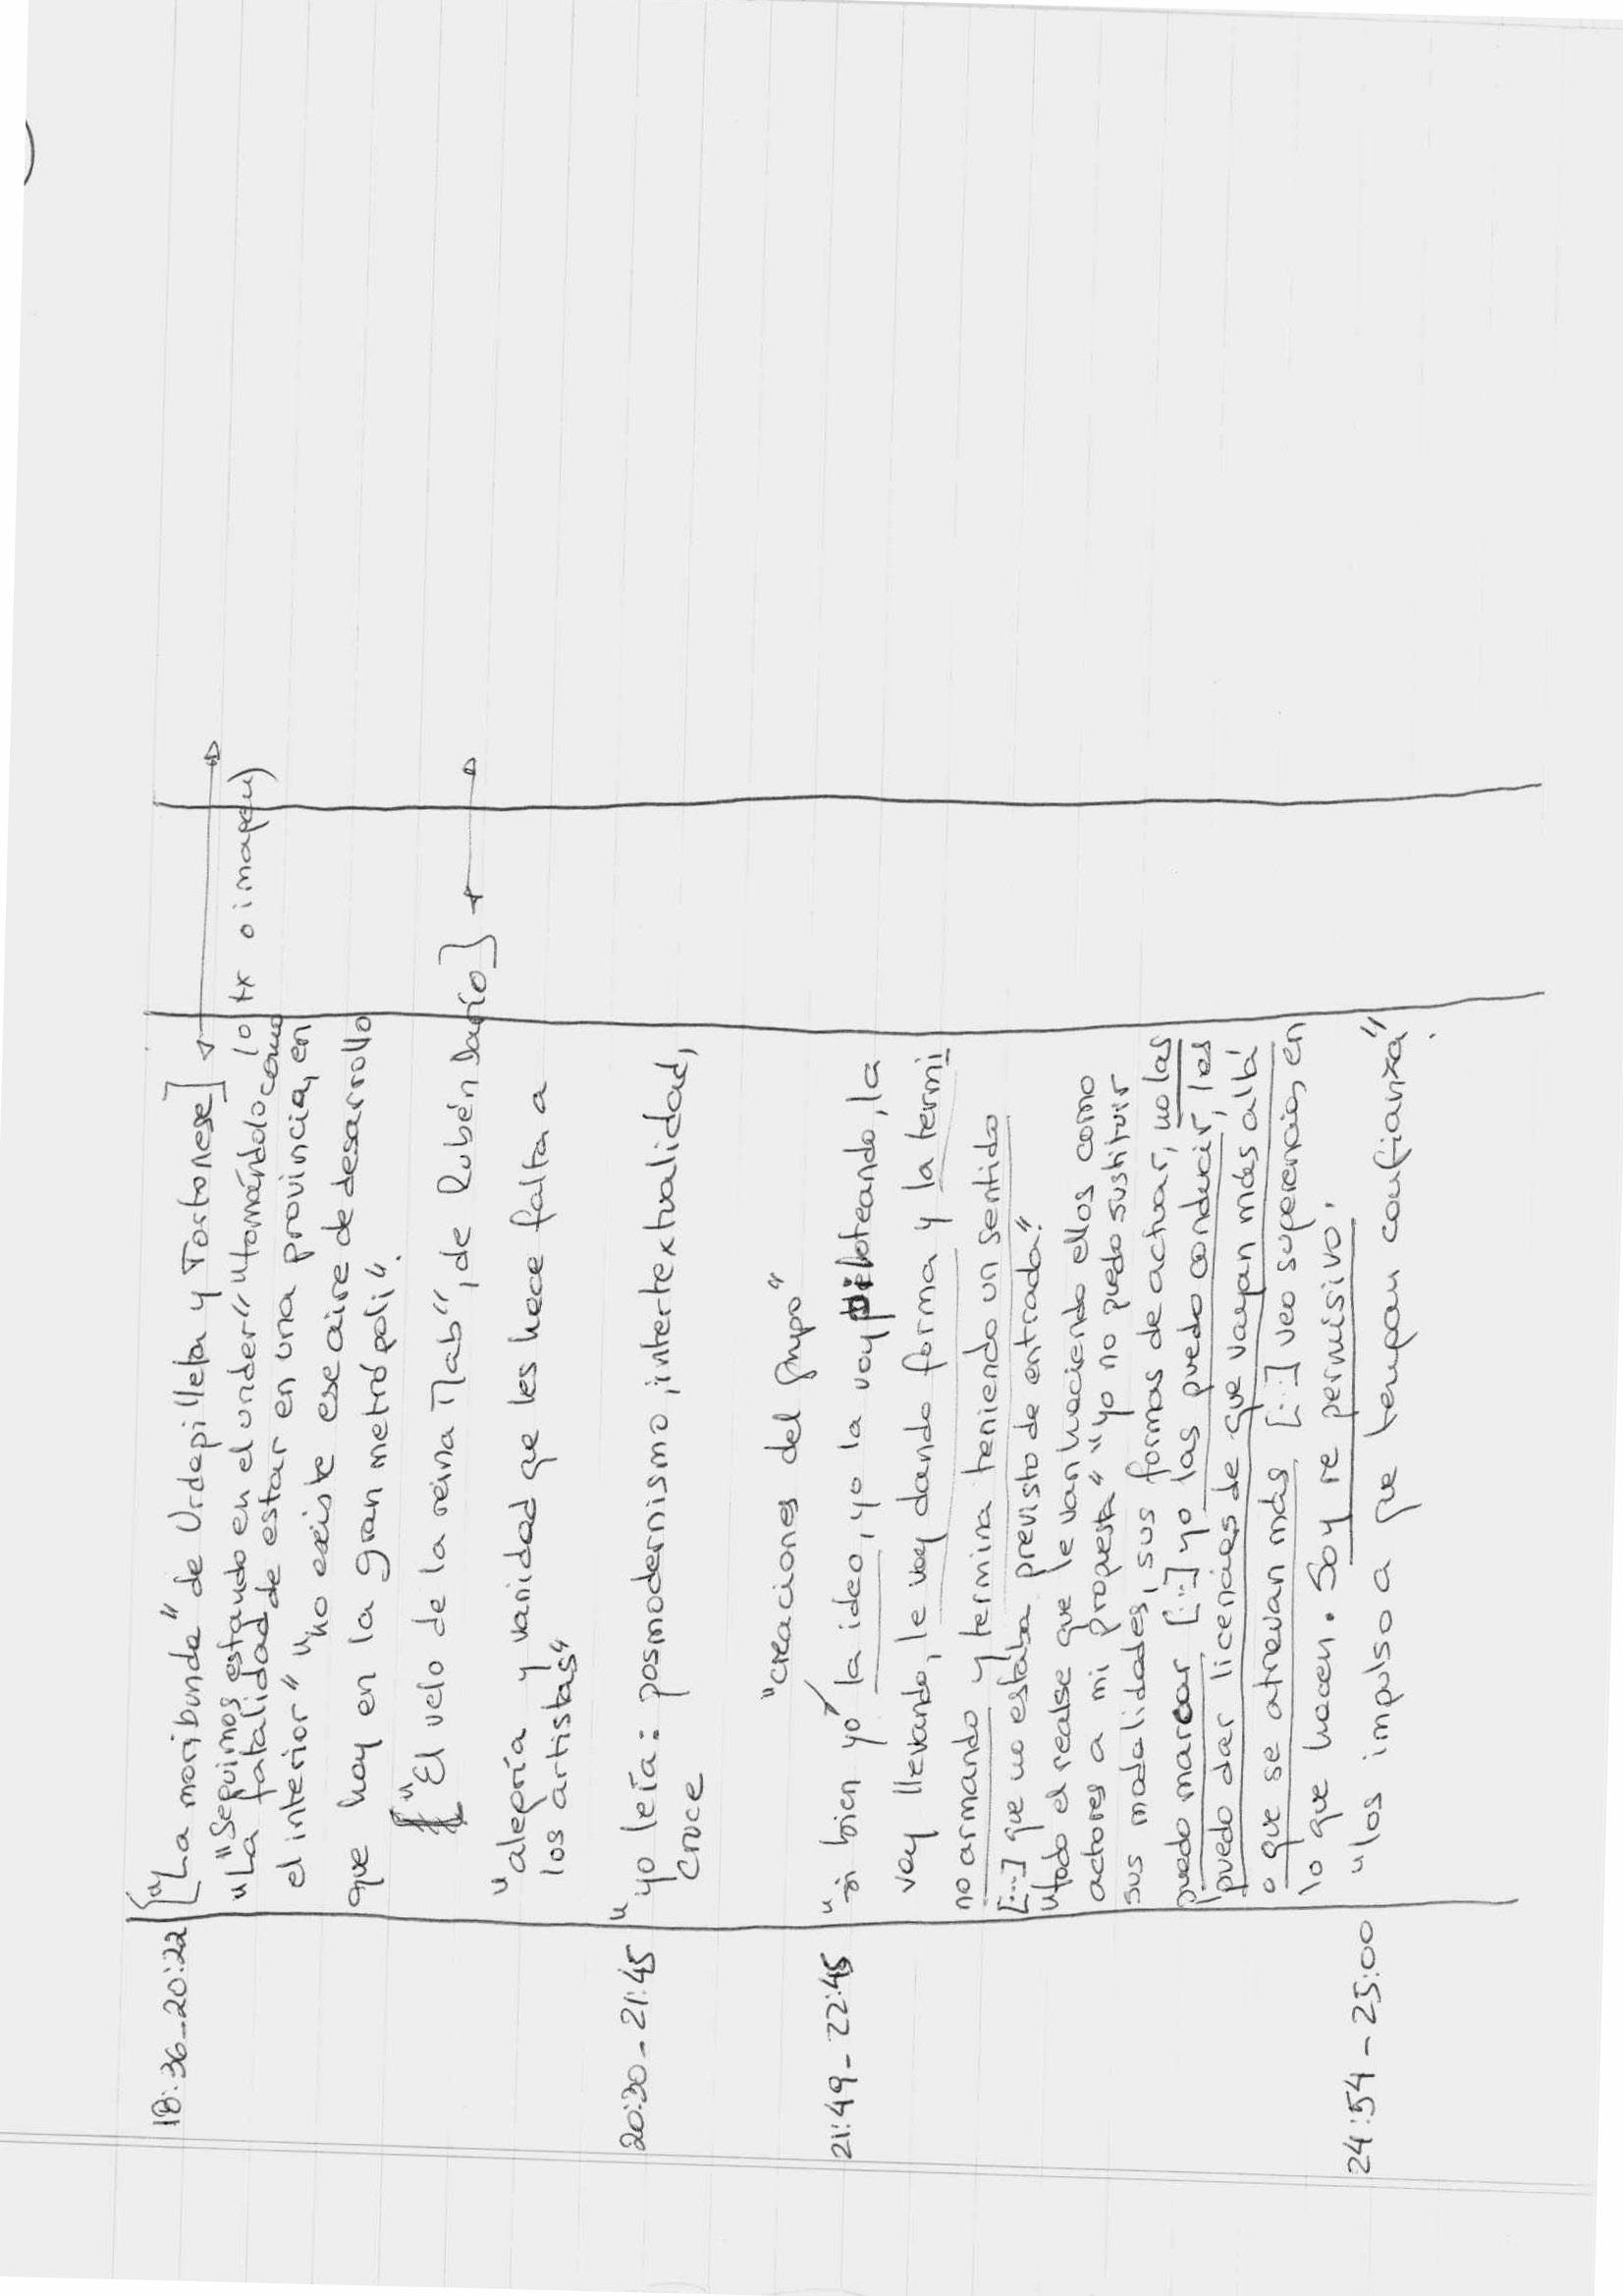 18:36-20:22 ["La moribunda" de Urdapilleta y Tortonese]
"Seguimos estando en el under" "tomándolo como (tx o imagen)
"La fatalidad de estar en una provincia, en
el interior" "no existe ese aire de desarrollo
que hay en la gran metrópoli".
["El velo de la reina Mab", de Rubén Darío]
"alegría y vanidad que les hace falta a
los artistas"
20:30-21:45 "yo leía: posmodernismo, intertextualidad,
cruce
"creaciones del grupo"
21:49-22:45 "si bien yo la idea, yo la voy piloteando, la
voy llevando, le voy dando forma y la termi
no armando y termina teniendo un sentido
[...] que no estaba previsto de entrada".
"todo el realse que le van haciendo ellos como
actores a mi propuesta" "yo no puedo sustituir
sus modalidades, sus formas de actuar, no las
puedo marcar [...] yo las puedo conducir, les
puedo dar licencias de que vayan más allá
o que se atrevan más [...] veo sugerencias, en
lo que hacen. Soy re permisivo.
24:54-25:00 "los impulso a que tengan confianza".